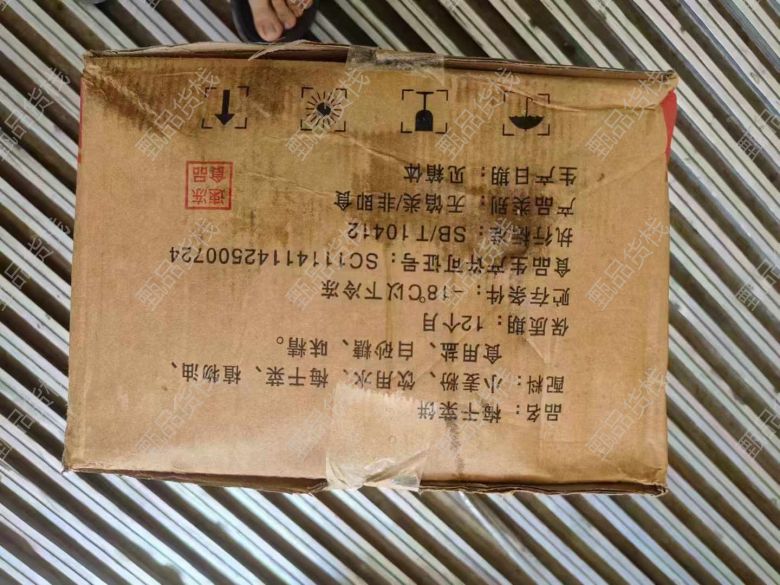 品名：梅干菜饼
配料：小麦粉、饮用水、梅干菜、植物油、
食用盐、白砂糖、味精。
保质期：12个月
贮存条件：-18℃以下冷冻
食品生产许可证号：SC11141142500724
执行标准：SB/T10412
产品类别：无馅类/非即食
生产日期：见箱体
速冻
食品
甄品货栈